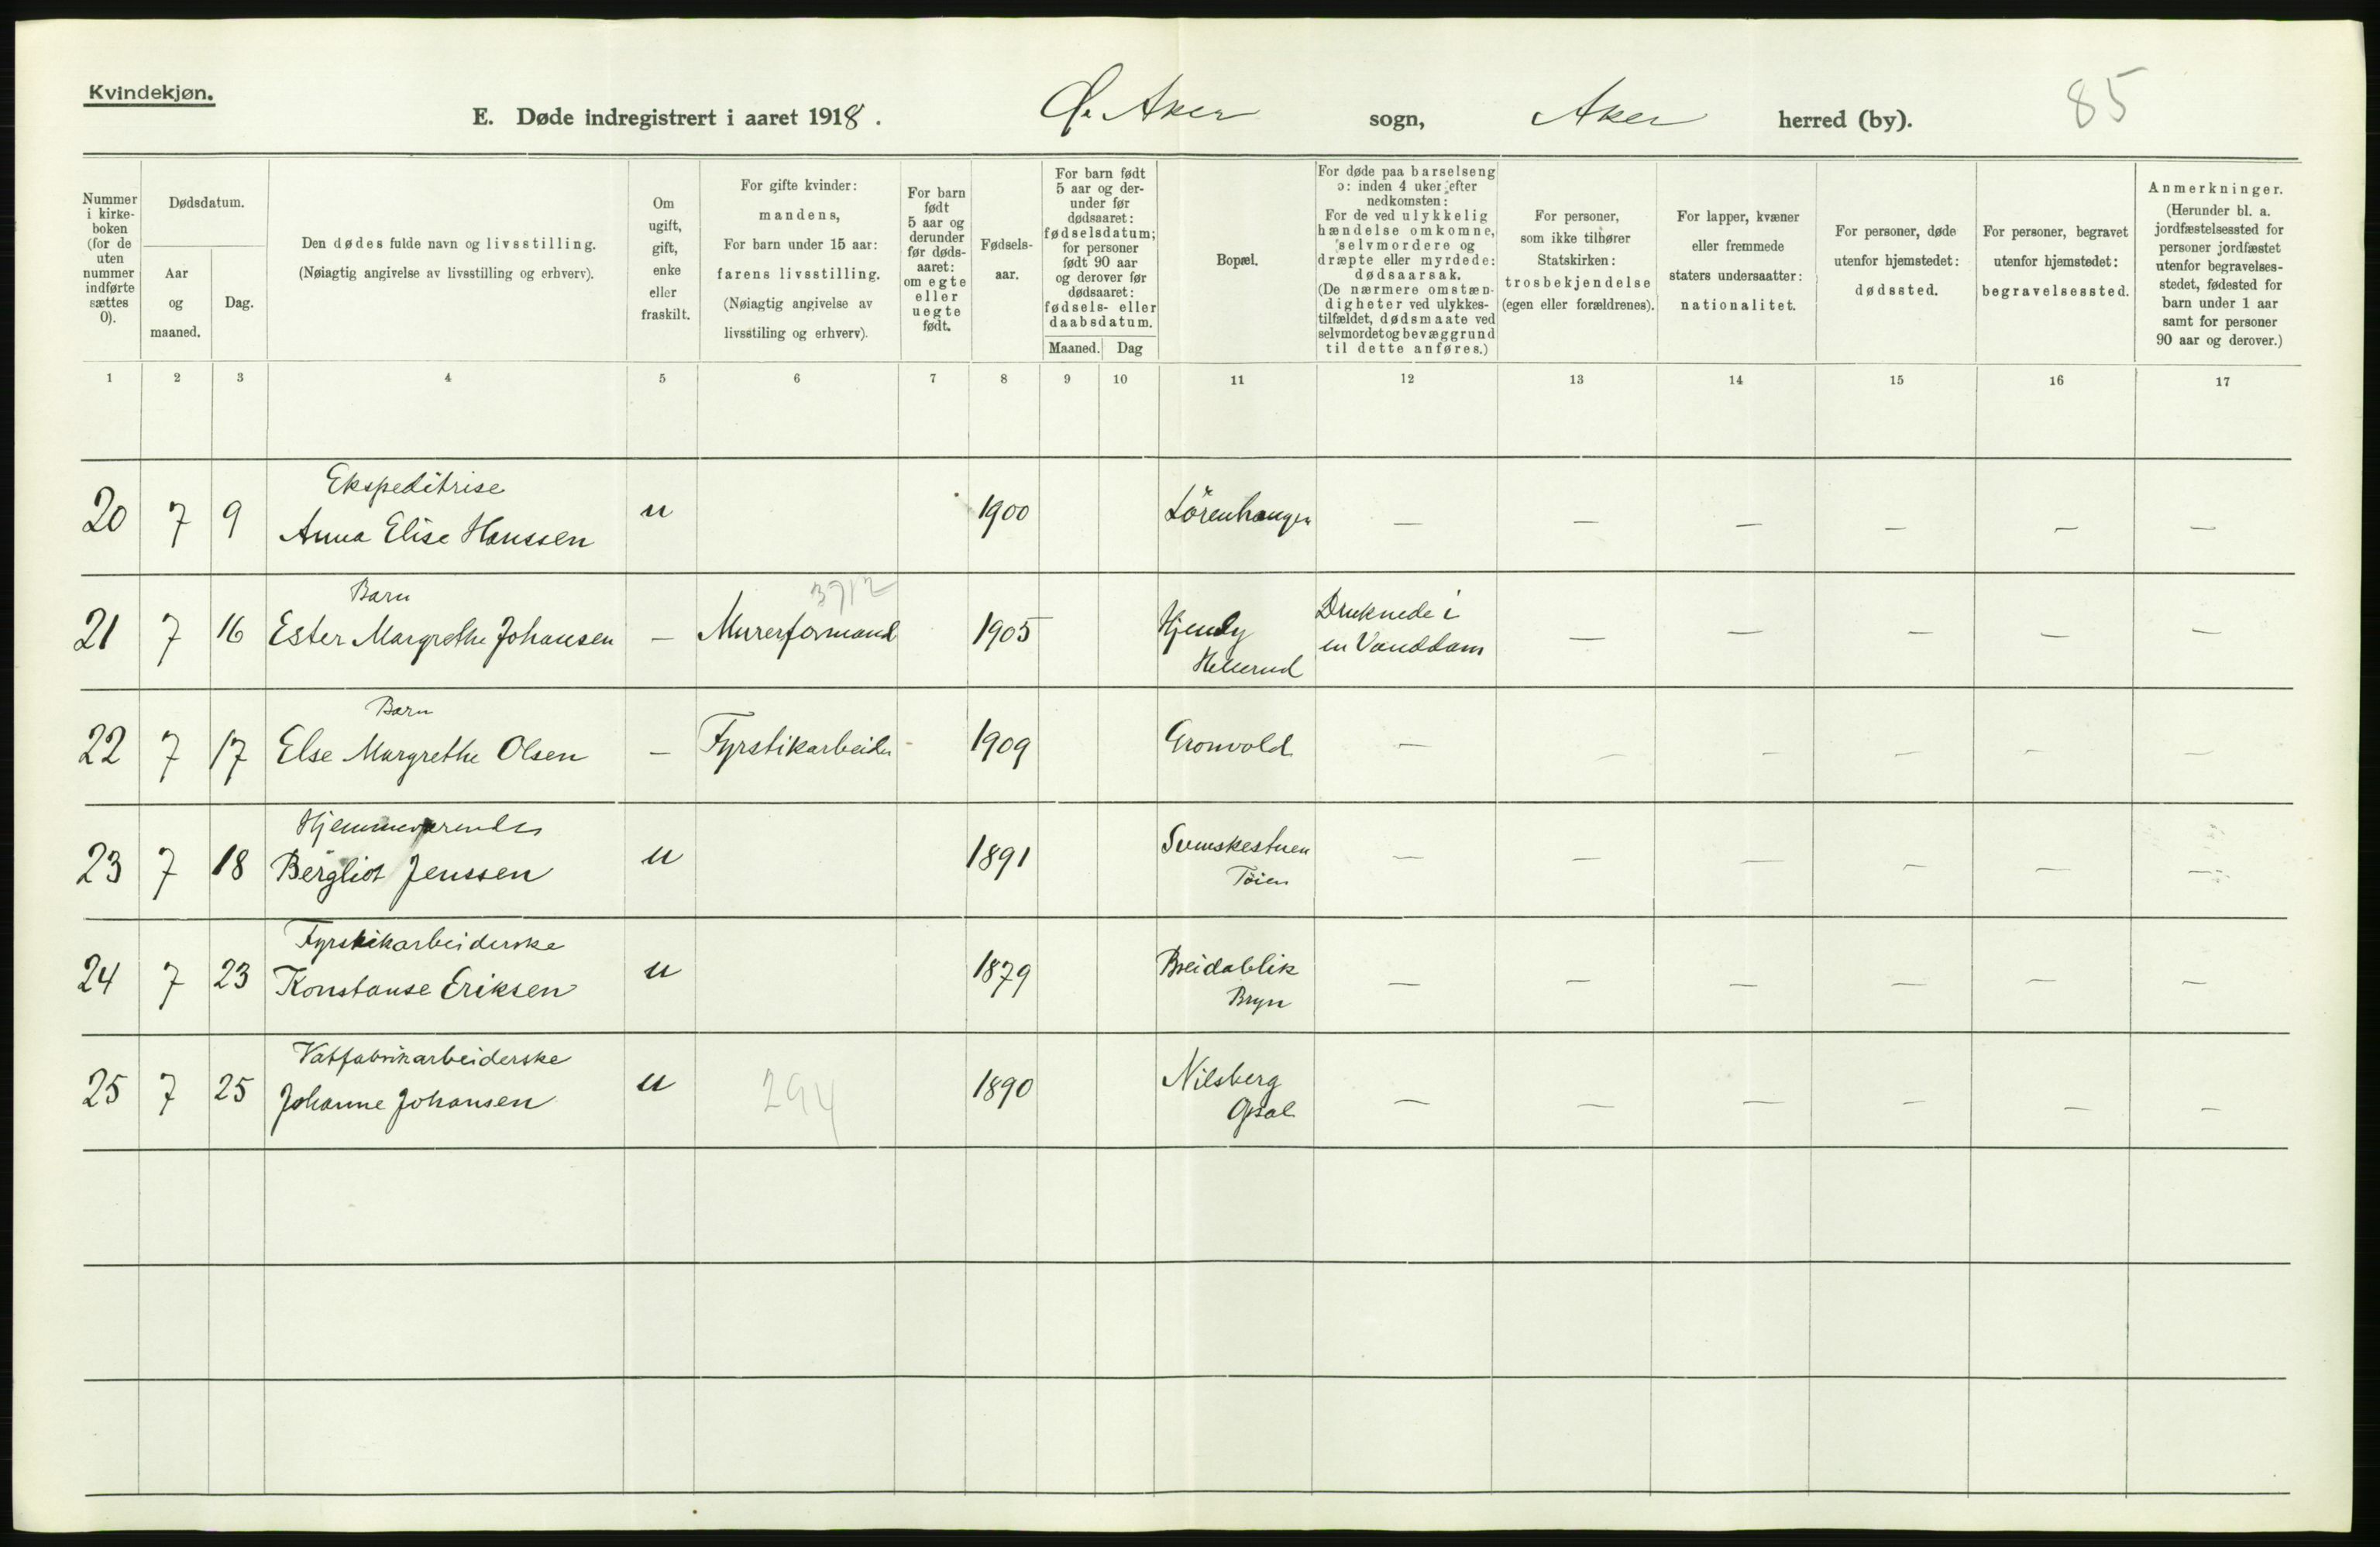 Kvindekjøn.
E. Døde indregistrert i aaret 1918. Ø. Aker sogn, Aker herred (by). 85
Nummer i kirke- boken (for de uten nummer indførte sættes 0).
Dødsdatum.
Aar og maaned.
Dag.
Den dødes fulde navn og livsstilling.
(Nøiagtig angivelse av livsstilling og erhverv).
Om ugift, gift, enke eller fraskilt.
For gifte kvinder: mandens,
For barn under 15 aar: farens livsstilling.
(Nøiagtig angivelse av livsstiling og erhverv).
For barn født 5 aar og derunder før døds- aaret: om egte eller uegte født.
Fødsels- aar.
For barn født 5 aar og der- under før dødsaaret: fødselsdatum; for personer født 90 aar og derover før dødsaaret: fødsels- eller daabsdatum.
Maaned. Dag
Bopæl.
For døde paa barselseng ɔ: inden 4 uker efter nedkomsten:
For de ved ulykkelig hændelse omkomne, selvmordere og dræpte eller myrdede: dødsaarsak.
(De nærmere omstæn- digheter ved ulykkes- tilfældet, dødsmaate ved selvmordet og bevæggrund til dette anføres.)
For personer, som ikke tilhører Statskirken: trosbekjendelse (egen eller forældrenes).
For lapper, kvæner eller fremmede staters undersaatter: nationalitet.
For personer, døde utenfor hjemstedet: dødssted.
For personer, begravet utenfor hjemstedet: begravelsessted.
Anmerkninger.
(Herunder bl. a. jordfæstelsessted for personer jordfæstet utenfor begravelses- stedet, fødested for barn under 1 aar samt for personer 90 aar og derover.)
1 2 3 4 5 6 7 8 9 10 11 12 13 14 15 16 17
Ekspeditrise
20 7 9 Anna Elise Hanssen u 1900 Lörenhaugen — — — — — —
Barn 3712
21 7 16 Ester Margrethe Johansen — Murerformand 1905 Hjemly Hellerud Druknede i en Vanddam — — — — —
Barn
22 7 17 Else Margrethe Olsen — Fyrstikarbeider - 1909 Gronvold — — — — — —
Hjemmeværende
23 7 18 Bergliot Jenssen u 1891 Svenskestuen Töien — — — — — —
Fyrstikarbeiderske
24 7 23 Konstanse Eriksen u 1879 Breidablik Bryn — — — — — —
Vatfabrikarbeiderske
25 7 25 Johanne Johansen u 294 1890 Nilsberg Opsal — — — — — —